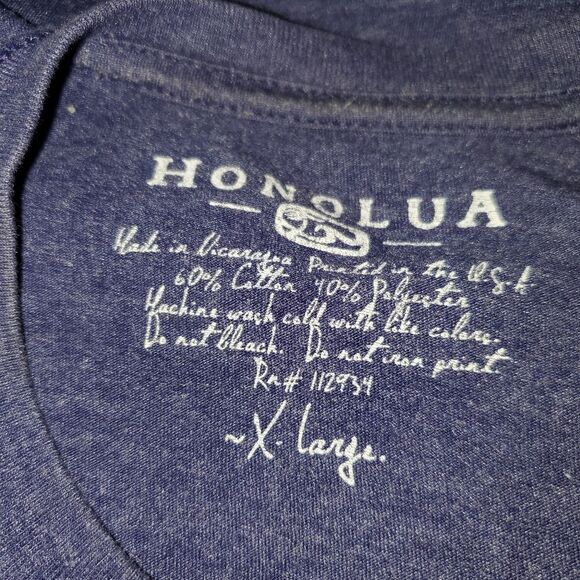 HONOLUA
Made in Nicaragua Printed in the U.S.A.
60% Cotton 40% Polyester
Machine wash cold with like colors.
Do not bleach. Do not iron print.
Rn# 112934
~X-Large.